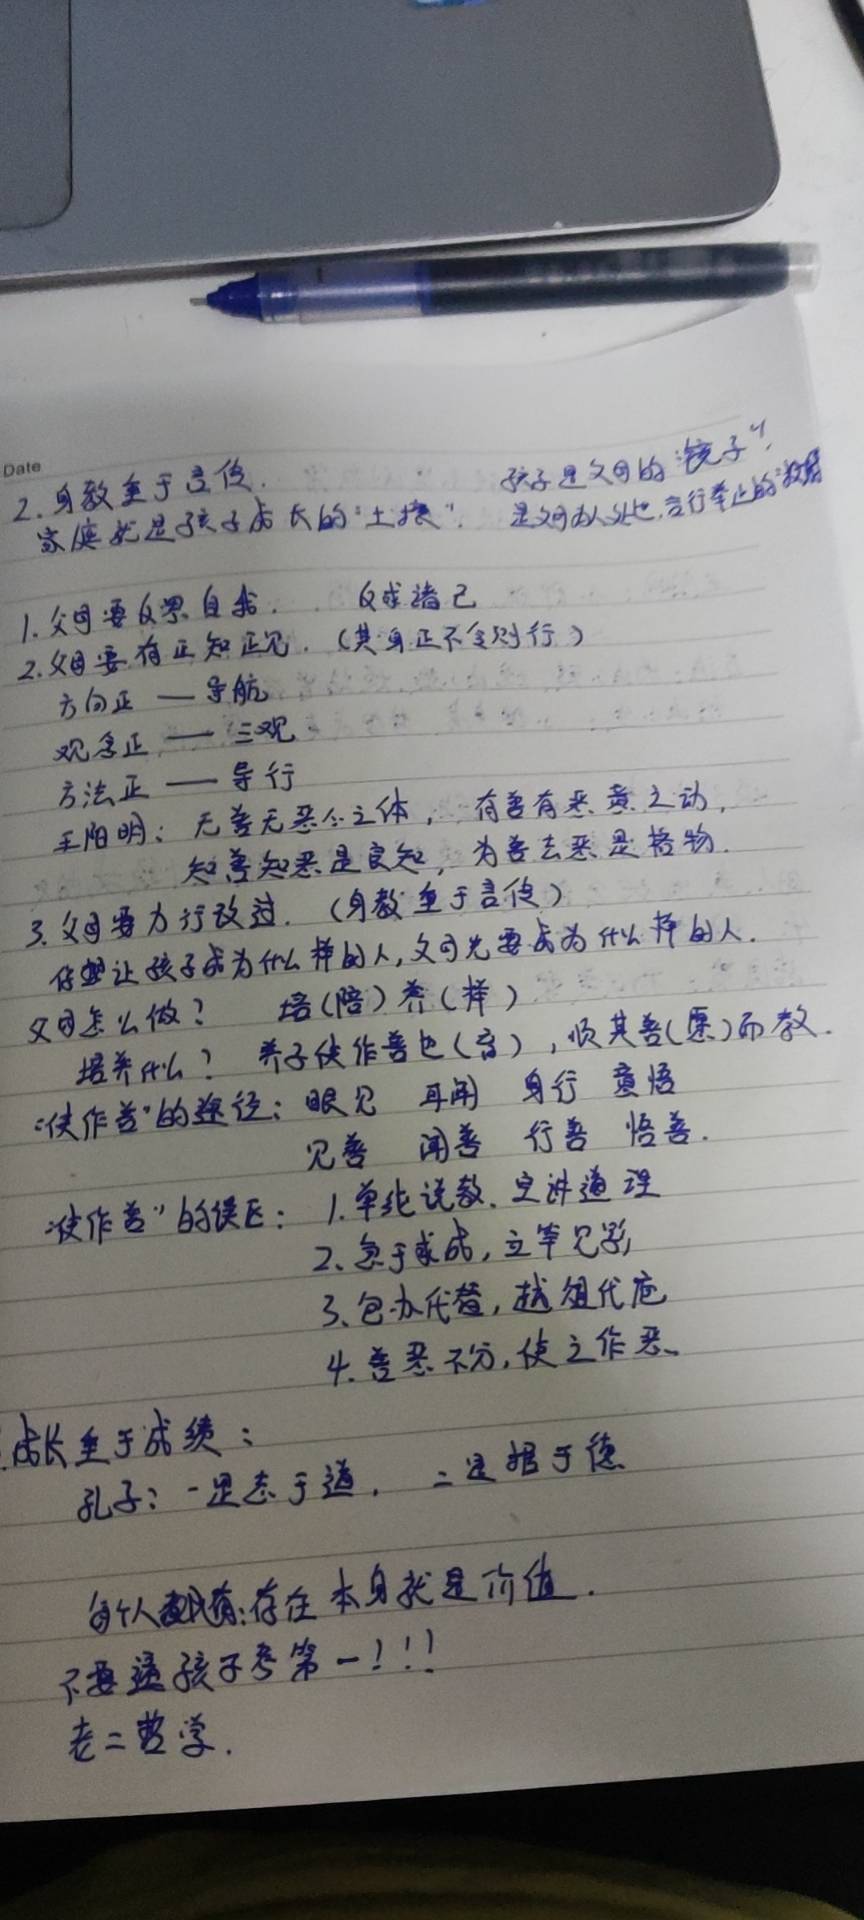 Date
2. 身教重于言传.
孩子是父母的"镜子",
家庭就是孩子成长的"土壤".
是父母为人处世,言行举止的"
1. 父母要反思自我. 反求诸己
2. 父母要有正知正见. (其身正不令则行)
方向正 — 导航
观念正 — 三观
方法正 — 导行
王阳明: 无善无恶心之体, 有善有恶意之动,
知善知恶是良知, 为善去恶是格物.
3. 父母要力行改过. (身教重于言传)
你想让孩子成为什么样的人,父母先要成为什么样的人.
父母怎么做? 培(陪)养(样)
培养什么? 养子使作善也(育), 顺其善(愿)而教.
"使作善"的途径: 眼见 耳闻 身行 意悟
见善 闻善 行善 悟善.
"使作善"的误区: 1. 单纯说教、空讲道理
2、急于求成, 立竿见影
3、包办代替, 越俎代庖
4. 善恶不分, 使之作恶、
成长重于成绩:
孔子: 一是志于道, 二是据于德
每个人 存在本身就是价值.
不要逼孩子考第一!!!
老二哲学.